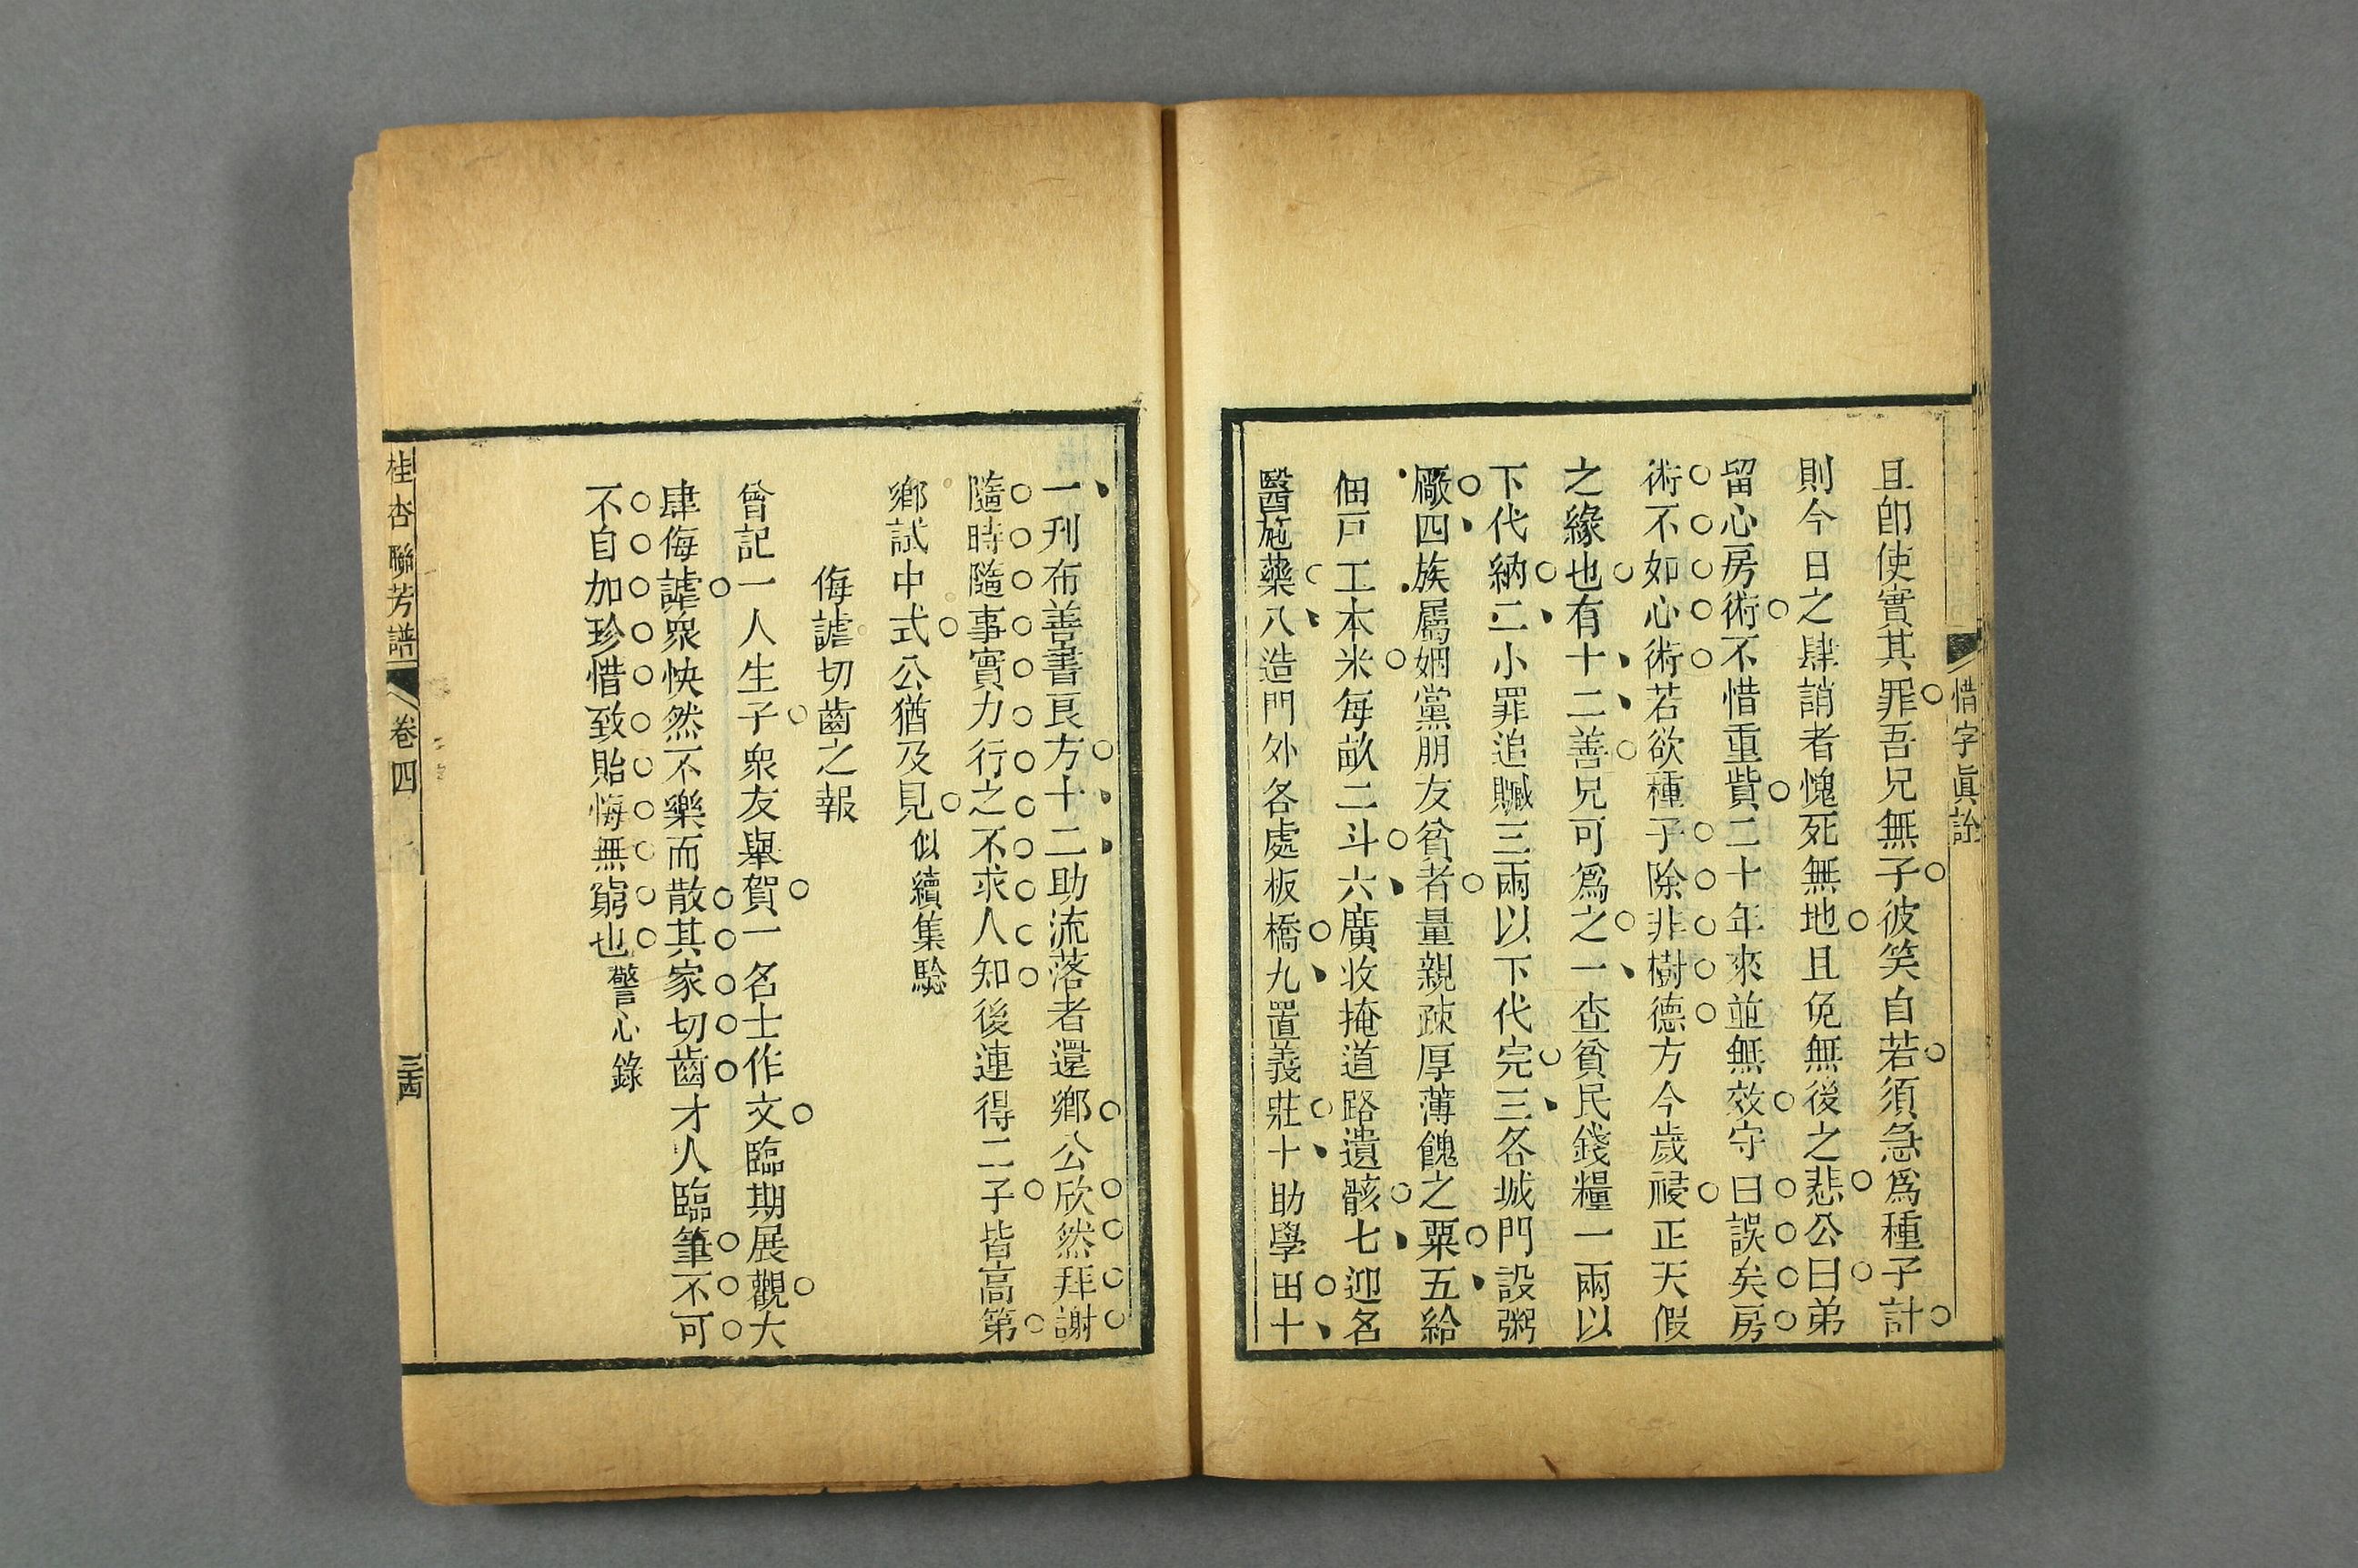 惜字眞詮
且卽使實其罪吾兄無子彼笑自若須急爲種子計
則今日之肆誚者愧死無地且免無後之悲公曰弟
留心房術不惜重貲二十年來並無效守曰誤矣房
術不如心術若欲種子除非樹德方今歲祲正天假
之緣也有十二善兄可爲之一查貧民錢糧一兩以
下代納二小罪追贓三兩以下代完三各城門設粥
厰四族屬姻黨朋友貧者量親疎厚薄餽之粟五給
佃戸工本米每畝二斗六廣收掩道路遺骸七迎名
醫施藥八造門外各處板橋九置義莊十助學田十
一刊布善書良方十二助流落者還鄕公欣然拜謝
隨時隨事實力行之不求人知後連得二子皆高第
鄕試中式公猶及見似續集騐
侮謔切齒之報
曾記一人生子衆友舉賀一名士作文臨期展觀大
肆侮謔衆怏然不樂而散其家切齒才人臨筆不可
不自加珍惜致貽悔無窮也警心錄
桂杏聯芳譜
卷四
三十四